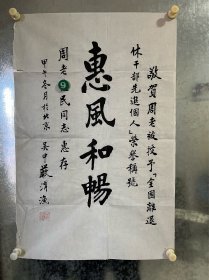 敬賀周老被授予「全國離退
休干部先進個人」榮譽稱號
惠風和暢
周老
9
民同志 惠存
甲午冬月於北京 吴中嚴